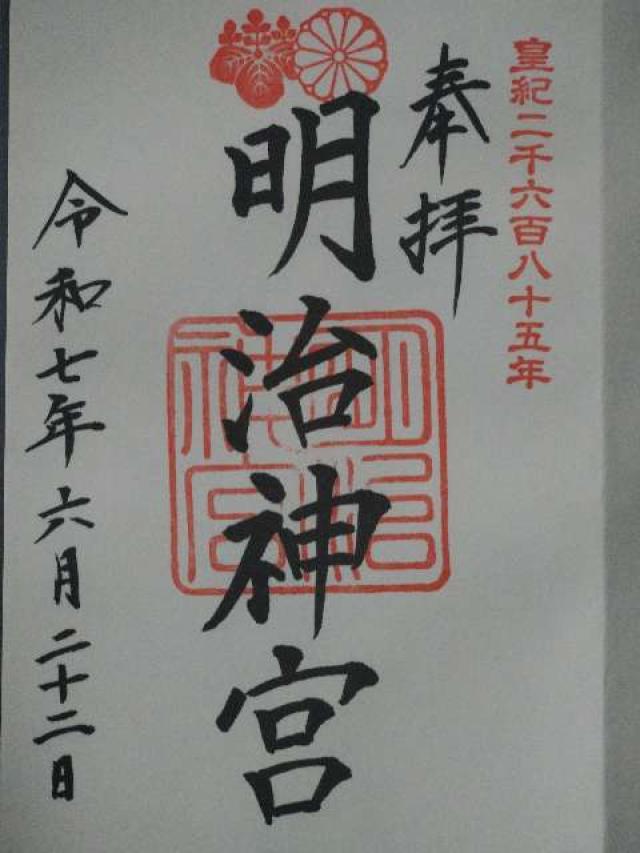 皇紀二千六百八十五年
奉拝
明治神宮
明治神宮
令和七年六月二十二日